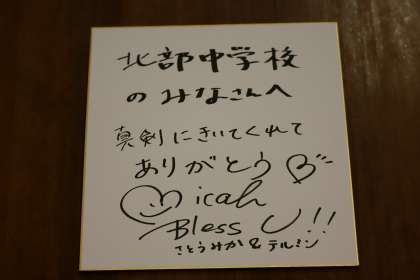 北部中学校
のみなさんへ
真剣にきいてくれて
ありがとう
Micah
Bless U!!
さとうみか & テルミン